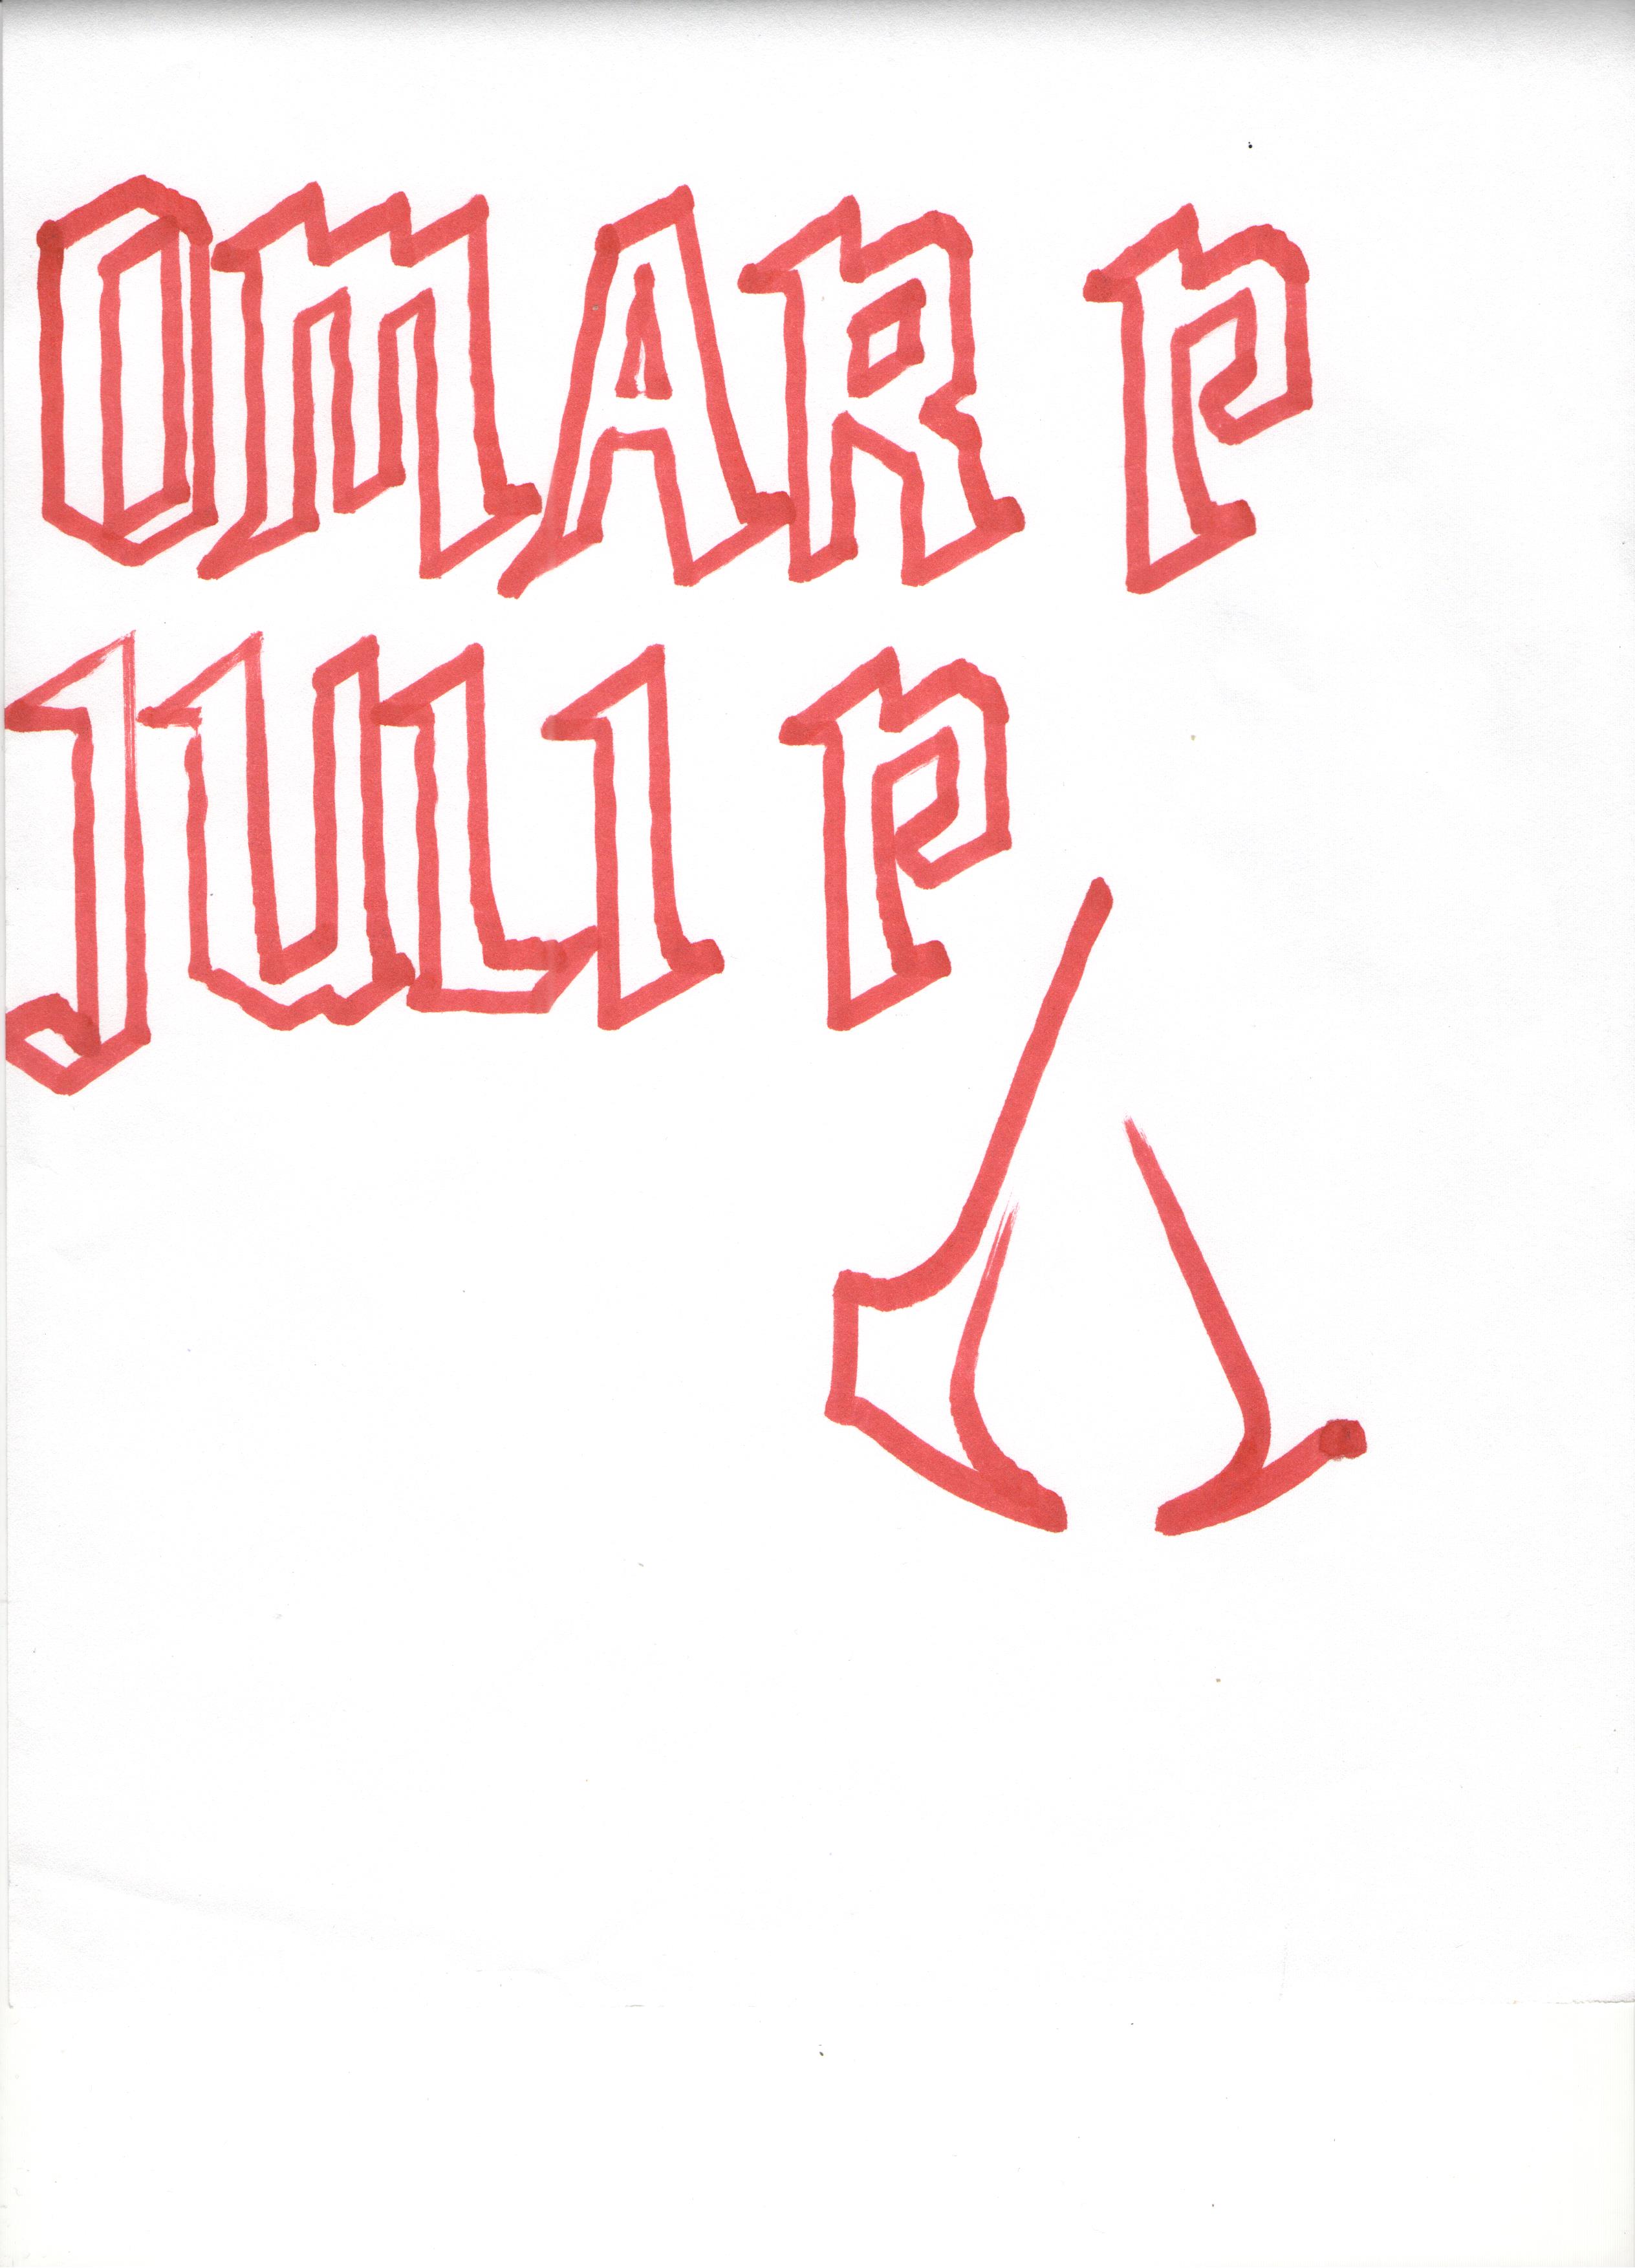 OMAR P
JULI P